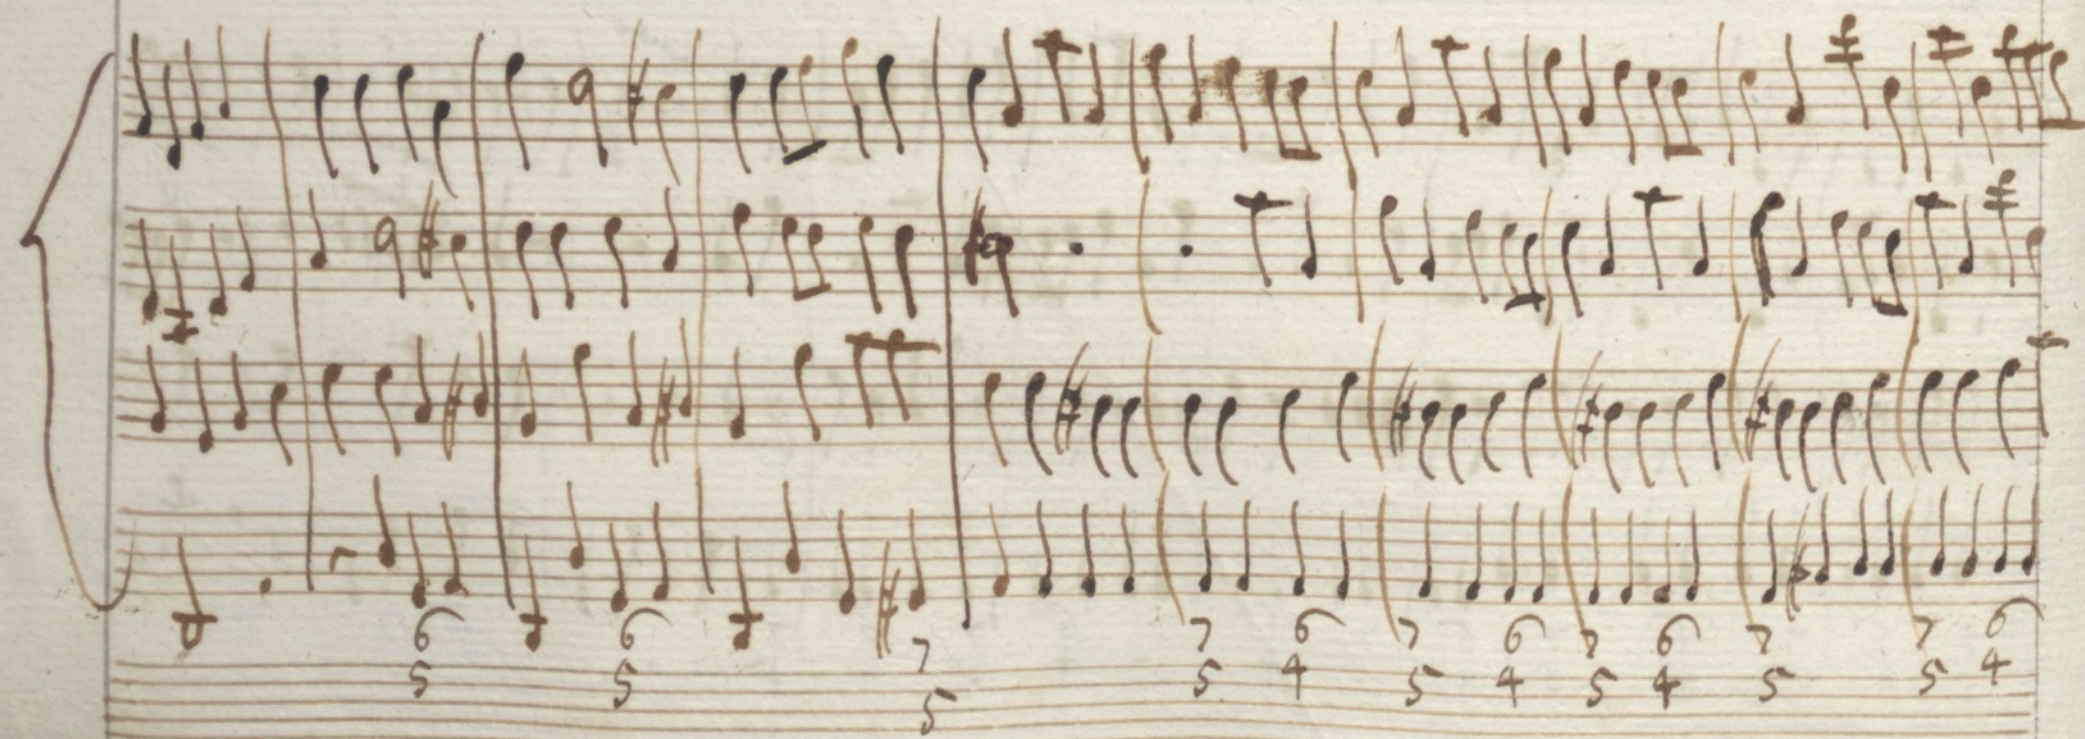 6 6 7 7 6 7 6 7 6 7 7 6
5 5 5 5 4 5 4 5 4 5 5 4